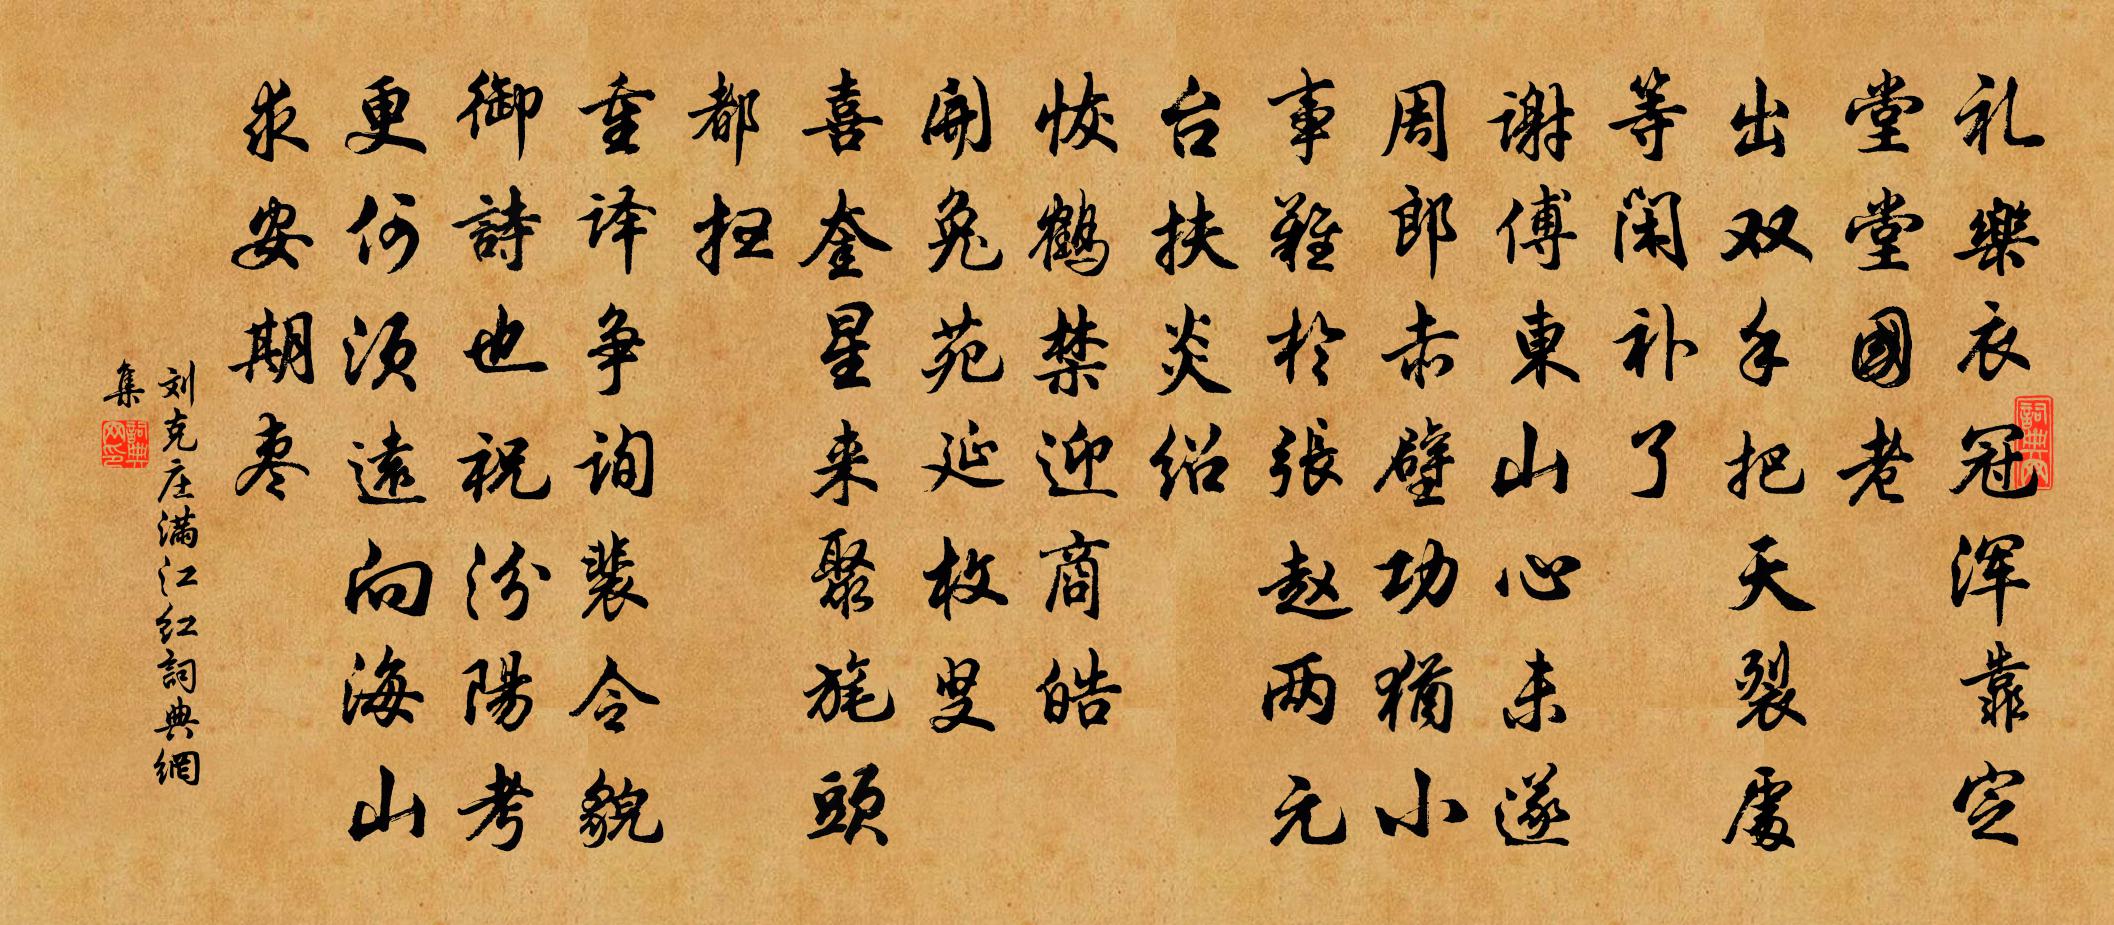 礼樂衣冠浑靠定
堂堂國老
出双手把天裂處
等闲补了
谢傅東山心未遂
周郎赤壁功猶小
事難於張赵两元
台扶炎绍
恢鶴禁迎商皓
開兔苑延枚叟
喜奎星来聚旄頭
都扫
重译争询裴令貌
御詩也祝汾陽考
更何须遠向海山
求安期枣
刘克庄满江红詞典網
集
詞典
詞典网印